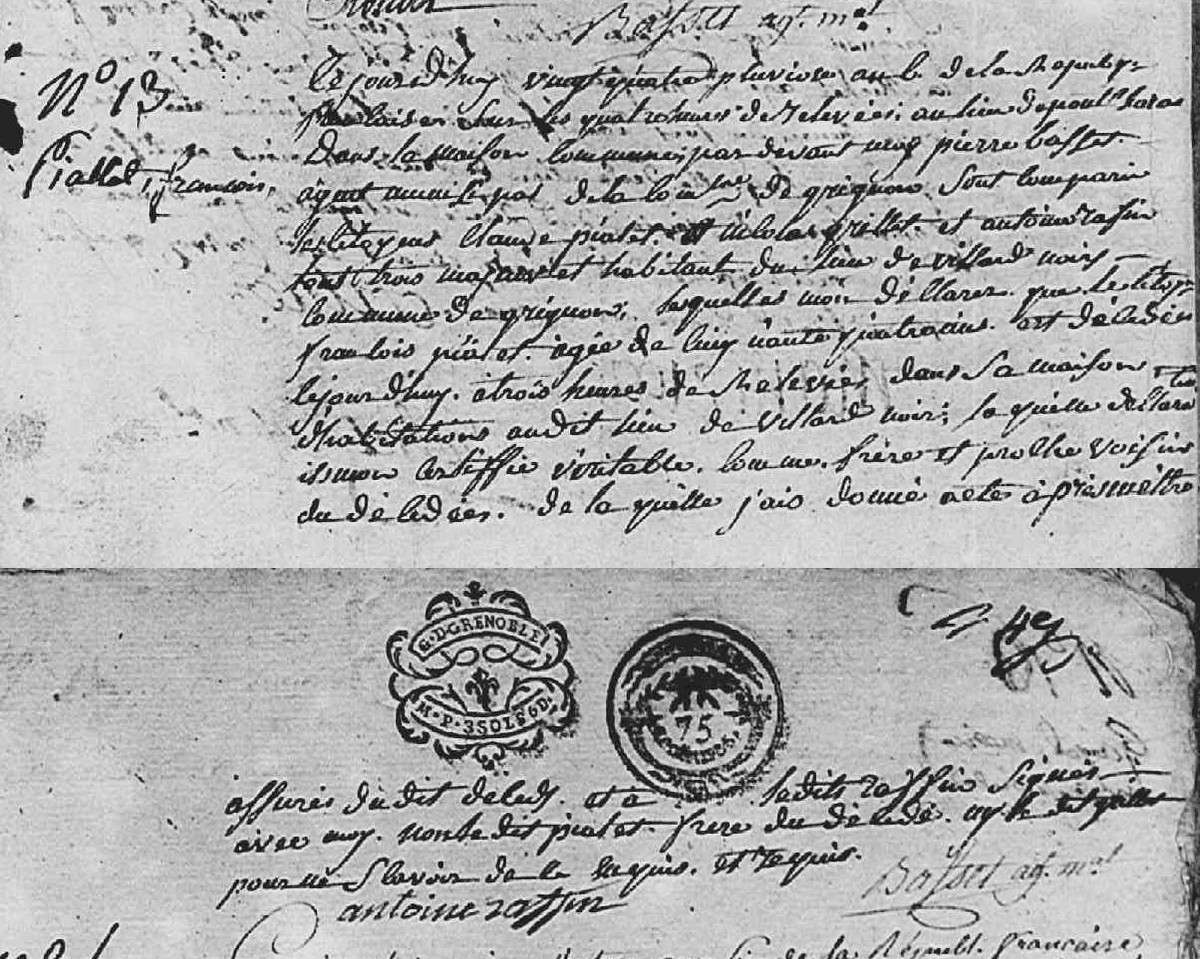 Basset agt. mal
N° 13
Piallet, francois,
Cejourd'huy vingt quatre pluviose an 6 de la Repub
sur les quatre heures de Relevées, au lieu de
Dans la maison Commune, par devant moy pierre basset
agent municipal de la Comne De grignon Sont Comparu
les Citoyens Claude piatet. et nicolas grillet. et antoine raffin
tous trois majeur et habitant du lieu de villard noirs
Commune de grignon; lesquelles mon déClarer que le Citoy
francois piatet. agée de Cinq uante quatre ans. est déCedées
Cejourd'huy. a trois heures de Relevées dans Sa maison
d'habitations audit lieu de villard noir; la quelle déClara
ils mon Certiffie véritable. Comme. frère et proche voisins
du déCedées. de la quelle j'ais donné acte après mêttre
G·D·GRENOBLE
M·P·3SOLS6D
75
49
assurés du dit déCeds. et a ledits raffin Signés
avec moy. non le dit piatet. frère du déCedé. ny le dit grillet
pour ne Scavoir de Ce enquis. et requis.
Basset agt. mal
antoine raffin
de la Républ. francaise